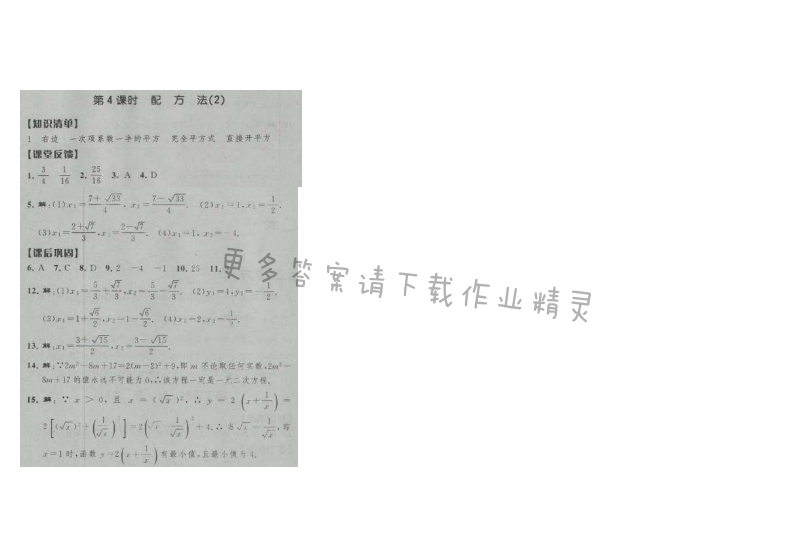 第4课时 配 方 法(2)
【知识清单】
1 右边 一次项系数一半的平方 完全平方式 直接开平方
【课堂反馈】
1. 3/4 1/16 2. 25/16 3. A 4. D
5. 解:(1)x₁=(7+√33)/4, x₂=(7-√33)/4. (2)x₁=1,x₂=1/2.
(3)x₁=(2+√7)/3,x₂=(2-√7)/3. (4)x₁=1,x₂=-4.
【课后巩固】
6. A 7. C 8. D 9. 2 -4 -1 10. 25 11.
12. 解:(1)x₁=5/3+√7/3,x₂=5/3-√7/3. (2)y₁=4,y₂=-1/2.
(3)x₁=1+√6/2,x₂=1-√6/2. (4)x₁=2,x₂=
13. 解:x₁=(3+√15)/2,x₂=(3-√15)/2.
14. 解:∵2m²-8m+17=2(m-2)²+9,即m不论取任何实数,2m²-
8m+17的值永远不可能为0,∴该方程一定是一元二次方程.
15. 解:∵x>0,且x=(√x)²,∴y=2(x+1/x)=
2[(√x)²+(1/√x)²]=2(√x-1/√x)²+4.∴当√x=1/√x,即
x=1时,函数y=2(x+1/x)有最小值,且最小值为4.
更多答案请下载作业精灵